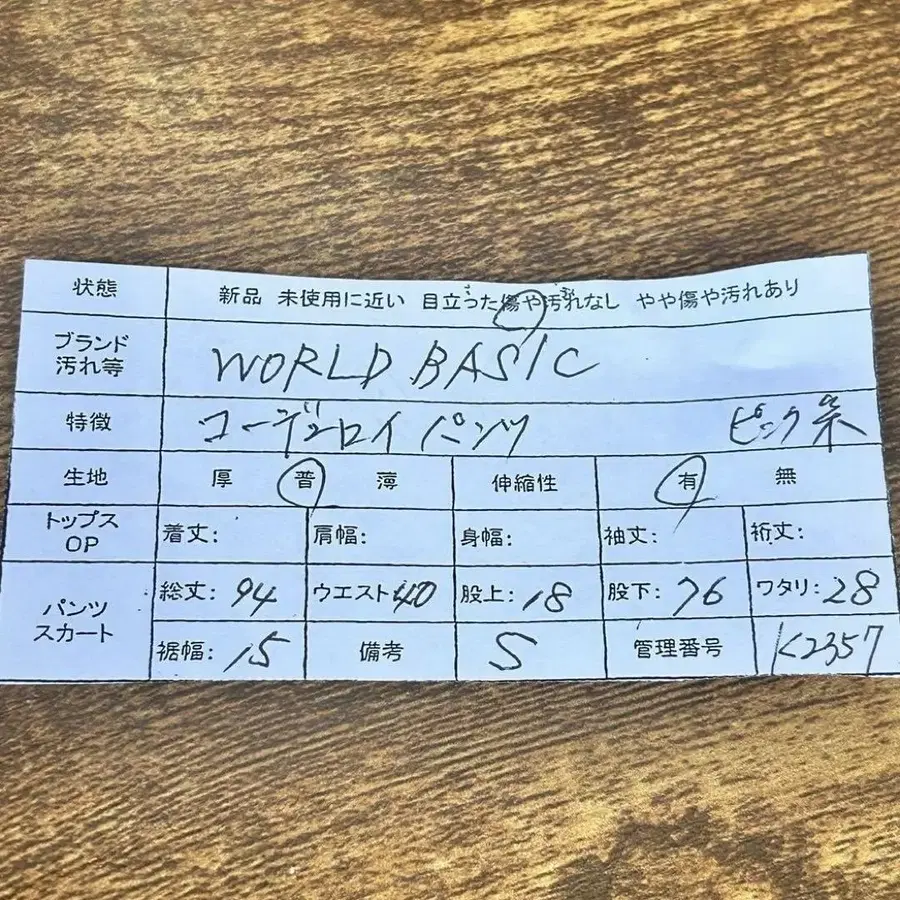 状態 新品 未使用に近い 目立った傷や汚れなし やや傷や汚れあり
ブランド
汚れ等 WORLD BASIC
特徴 コーデュロイパンツ ピンク系
生地 厚 普 薄 伸縮性 有 無
トップス
OP 着丈: 肩幅: 身幅: 袖丈: 裄丈:
パンツ
スカート 総丈:94 ウエスト40 股上:18 股下:76 ワタリ:28
裾幅:15 備考 S 管理番号 K2357